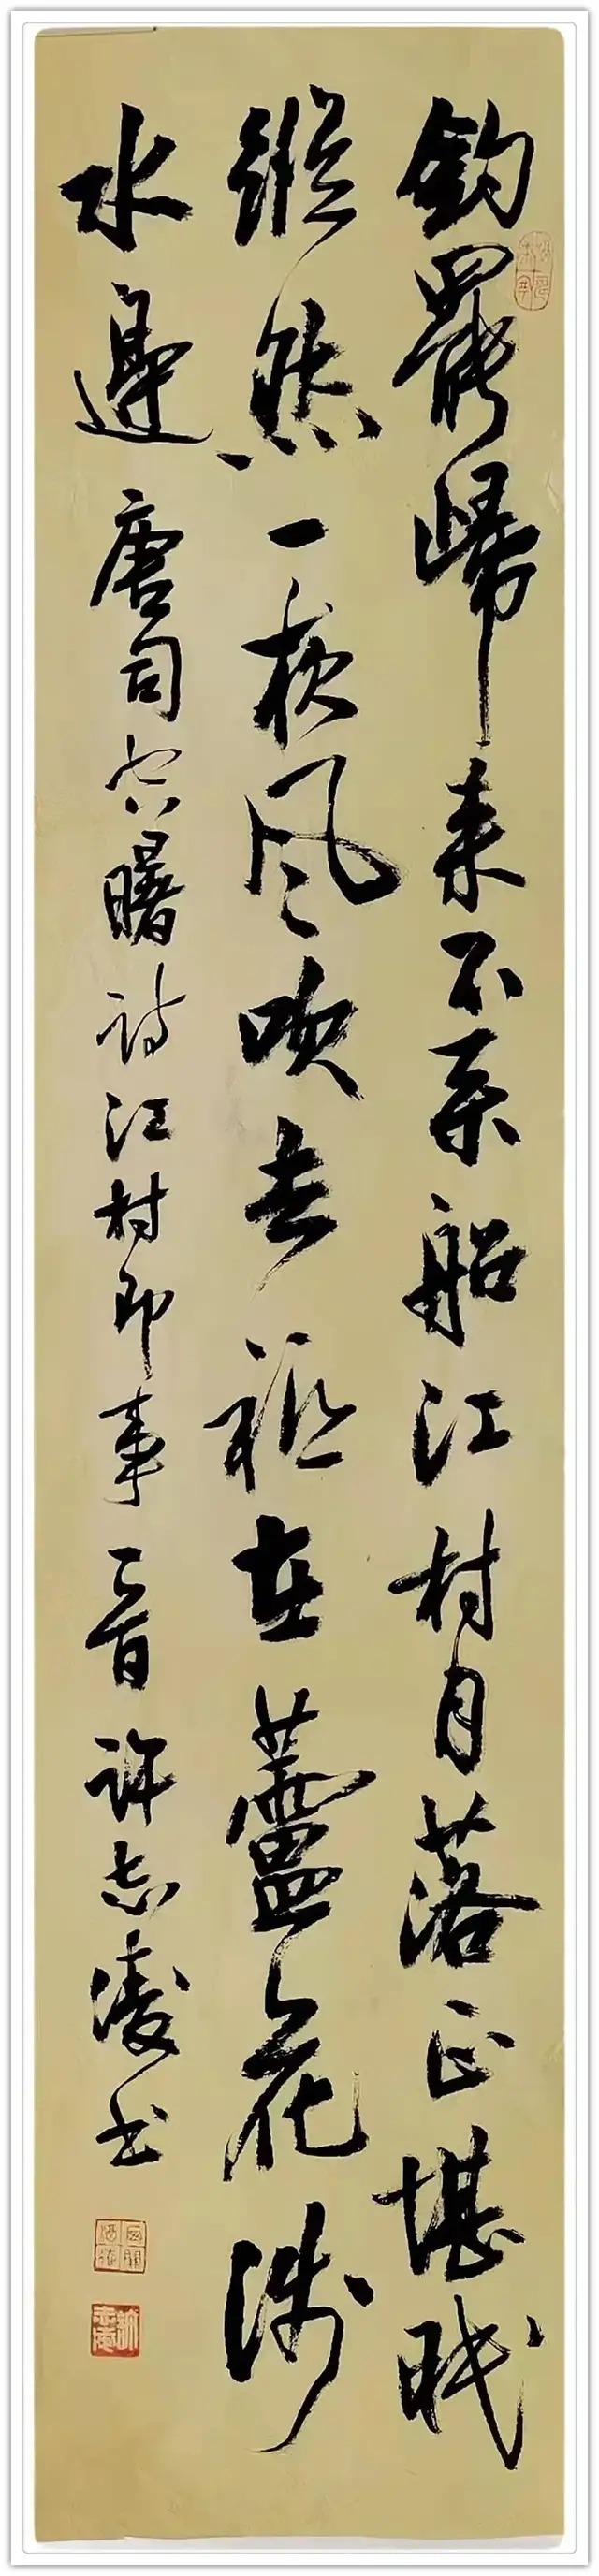 釣罷歸来不系船江村月落正堪眠
縱然一夜风吹去祗在蘆花浅
水邊 唐司空曙诗江村即事 晋 许志凌书